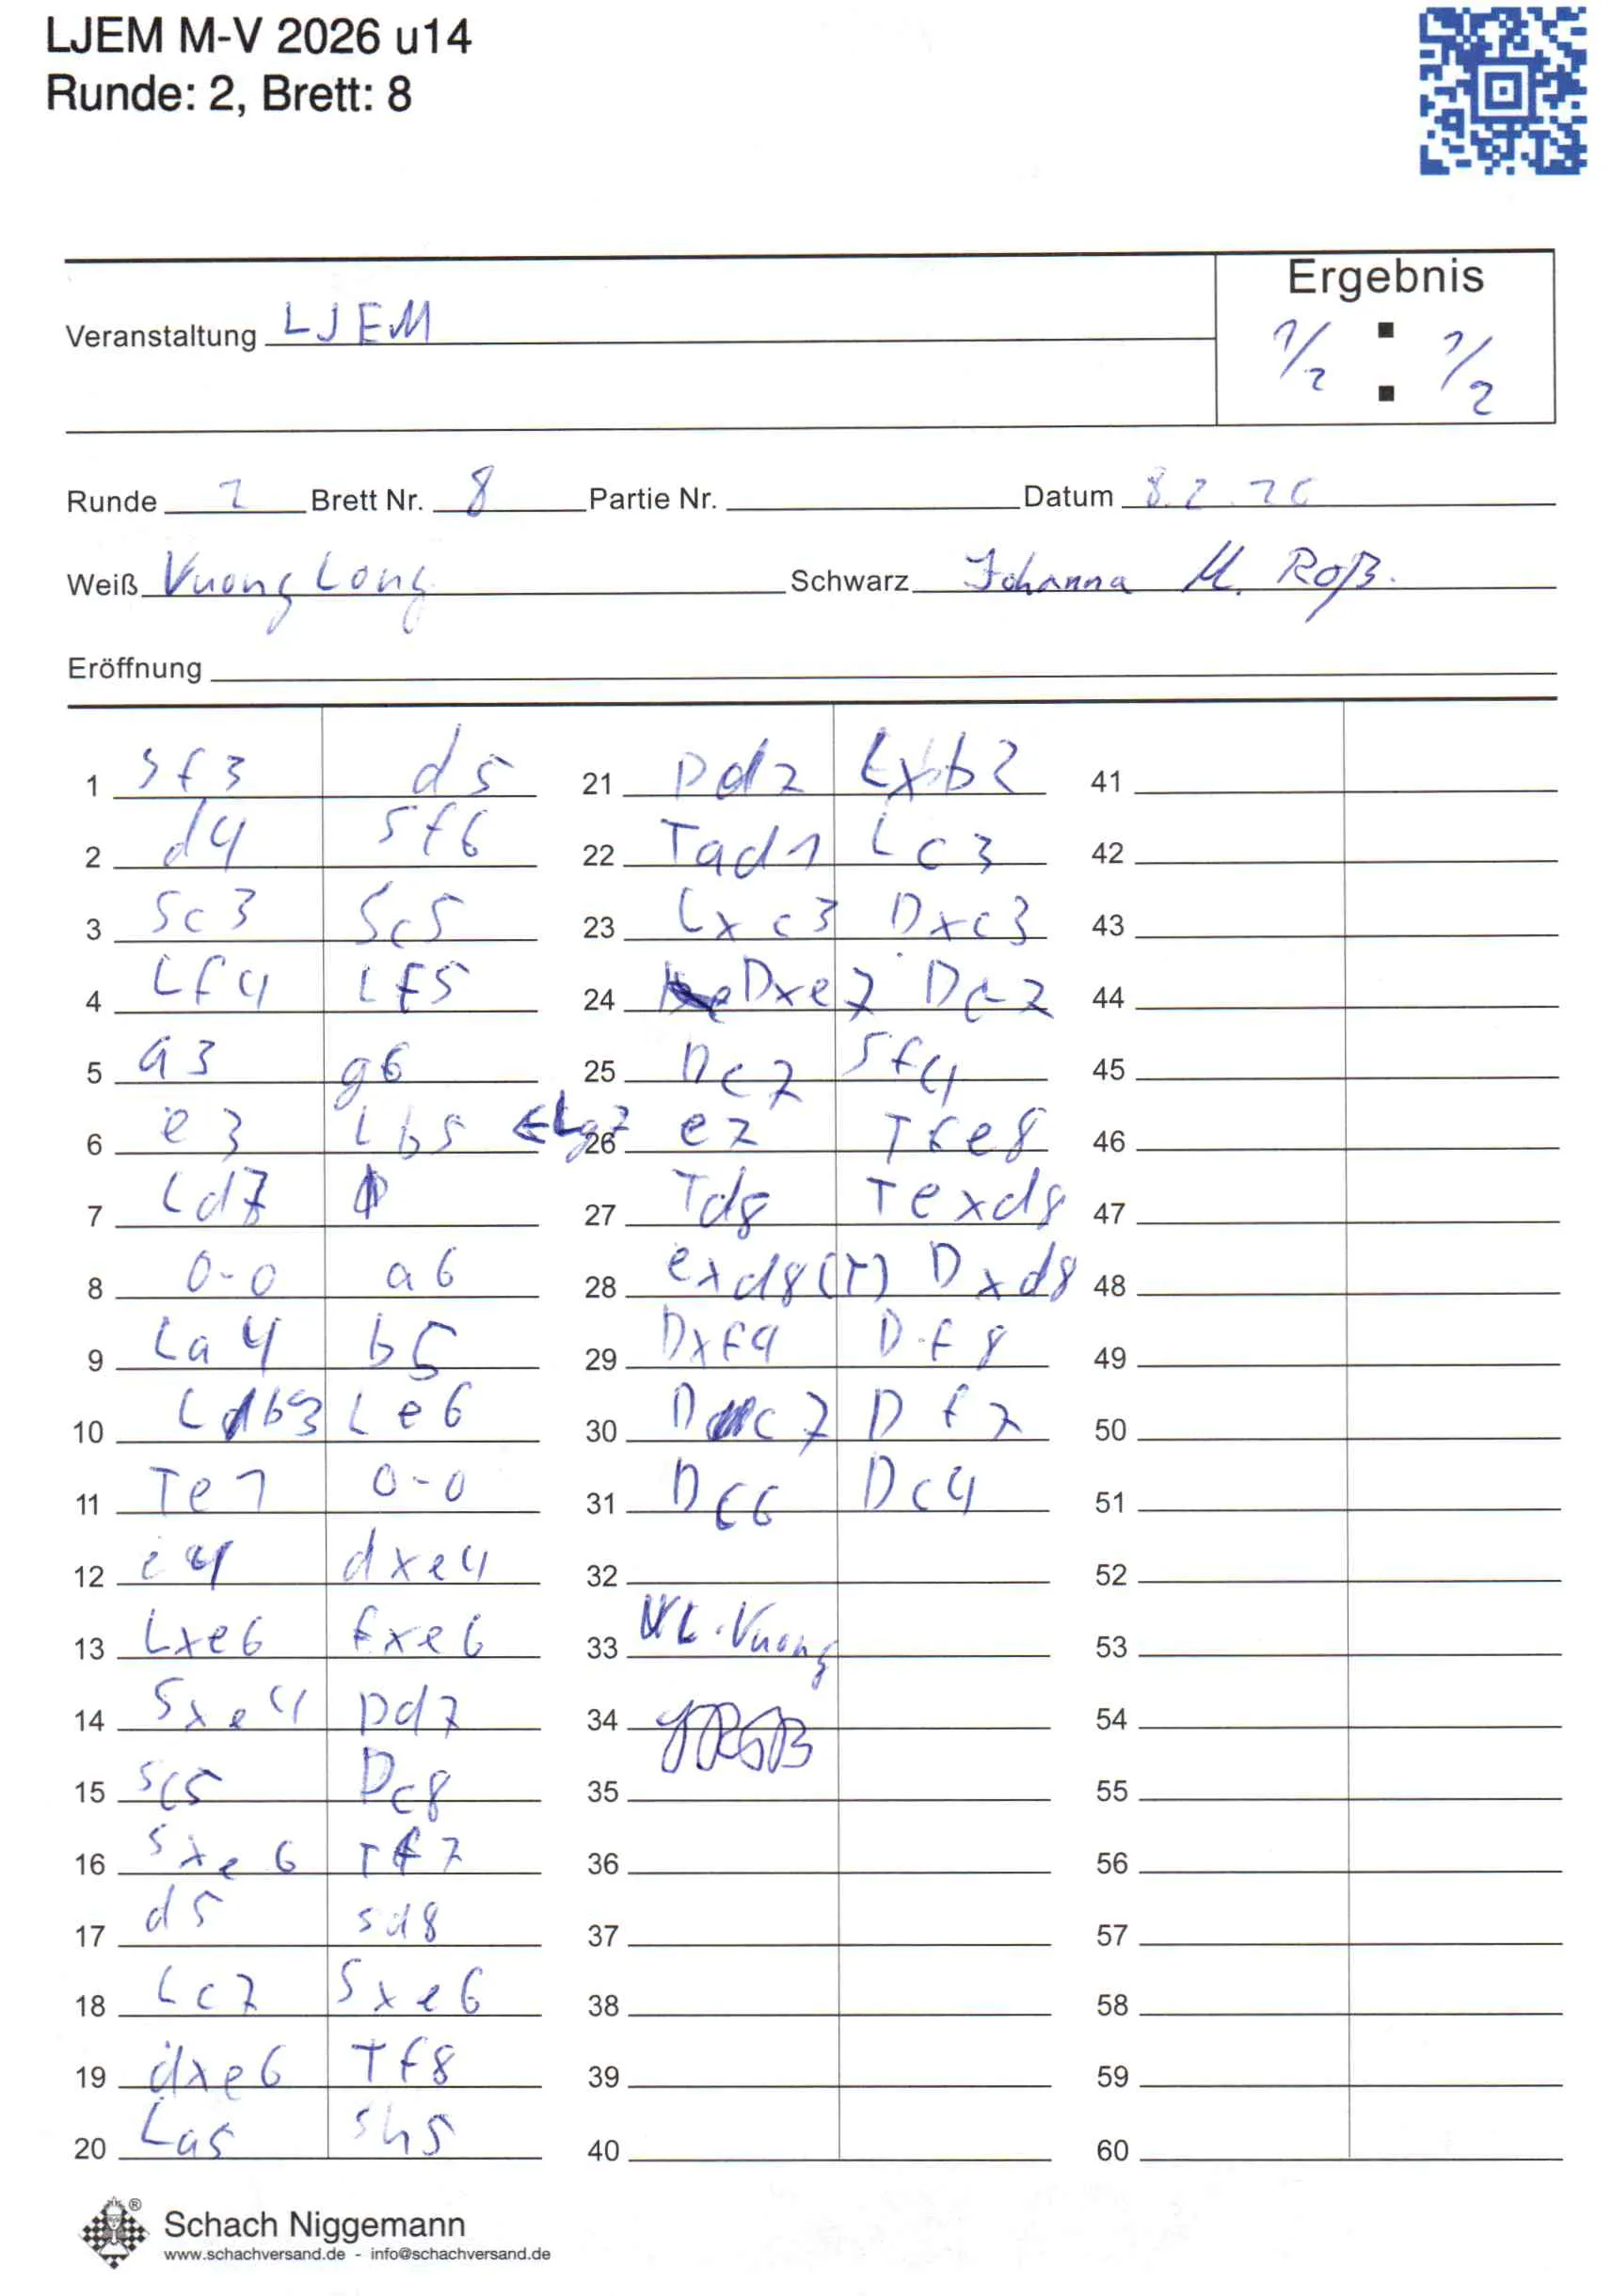 LJEM M-V 2026 u14
Runde: 2, Brett: 8
Ergebnis
Veranstaltung LJEM
1/2 : 1/2
Runde 2 Brett Nr. 8 Partie Nr. Datum 8.2.26
Weiß Vuong Long Schwarz Johanna M. Roß.
Eröffnung
1 Sf3 d5
2 d4 Sf6
3 Sc3 Sc5
4 Lf4 Lf5
5 a3 g6
6 e3 Lb5 ←Lg7
7 Ld7
8 0-0 a6
9 La4 b5
10 Lb3 Le6
11 Te1 0-0
12 e4 dxe4
13 Lxe6 fxe6
14 Sxe4 Dd7
15 Sc5 Dc8
16 Sxe6 Tf7
17 d5 Sd8
18 Lc7 Sxe6
19 dxe6 Tf8
20 La5 Sh5
21 Dd2 Lxb2
22 Tad1 Lc3
23 Lxc3 Dxc3
24 Dxe7 Dc2
25 Dc7 Sf4
26 e7 Tfe8
27 Td8 Texd8
28 exd8(T) Dxd8
29 Dxf4 Df8
30 Dc7 Df7
31 Dc6 Dc4
32
33 L. Vuong
34
35
36
37
38
39
40
41
42
43
44
45
46
47
48
49
50
51
52
53
54
55
56
57
58
59
60
Schach Niggemann
www.schachversand.de - info@schachversand.de